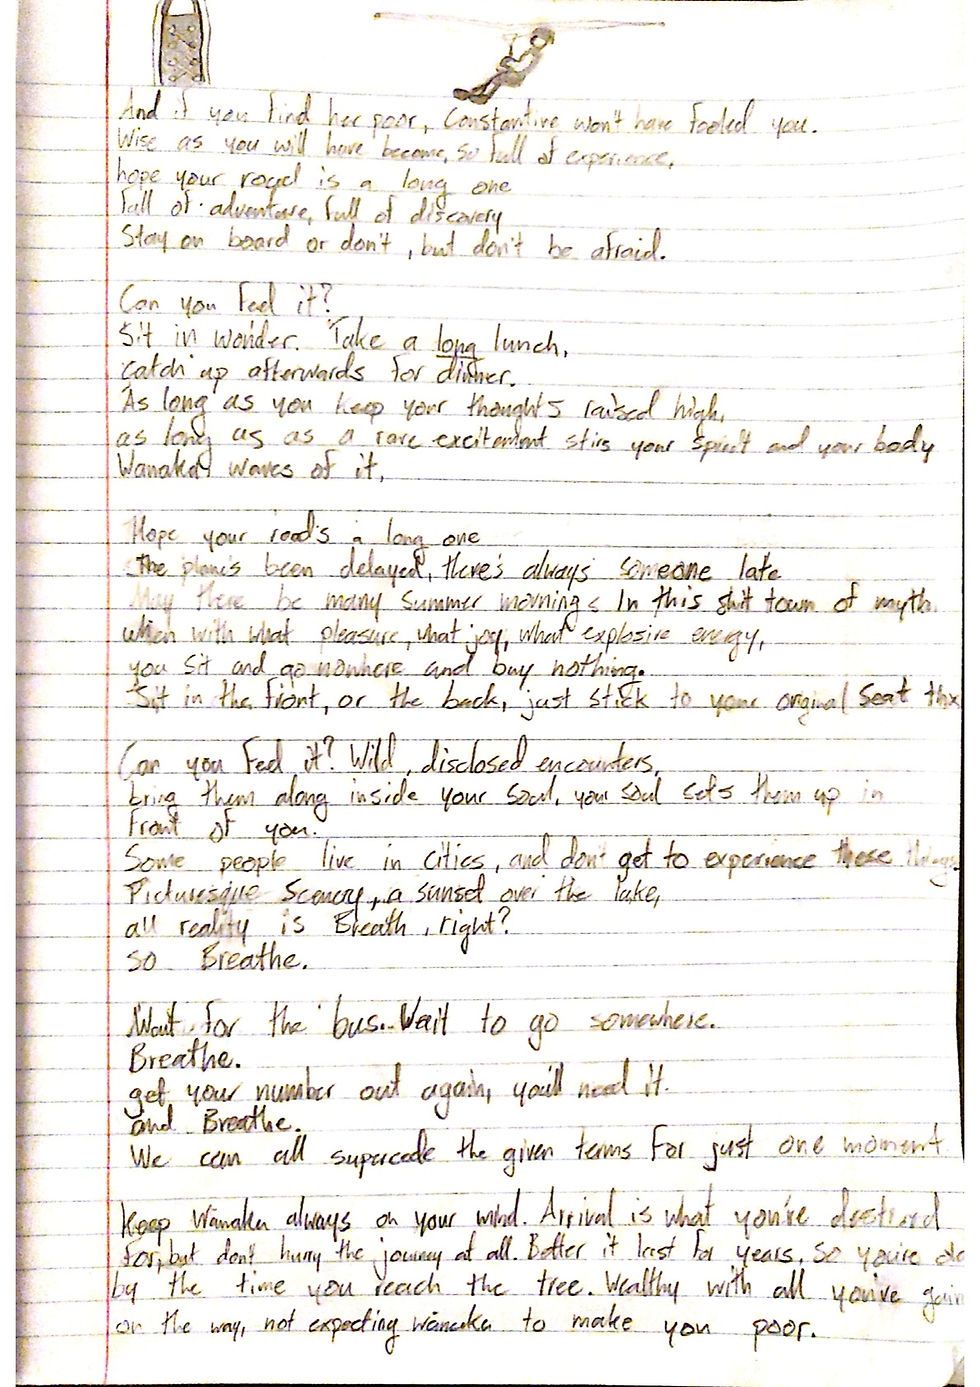 And if you find her poor, Constantine won't have fooled you.
Wise as you will have become, so full of experience,
hope your road is a long one
full of adventure, full of discovery
Stay on board or don't, but don't be afraid.
Can you feel it?
Sit in wonder. Take a long lunch,
catch up afterwards for dinner.
As long as you keep your thoughts raised high,
as long as as a rare excitement stirs your spirit and your body
Wanaka waves of it,
Hope your road's a long one
The plane's been delayed, there's always someone late
May there be many summer mornings In this shit town of myth.
when with what pleasure, what joy, what explosive energy,
you sit and go nowhere and buy nothing.
Sit in the front, or the back, just stick to your original seat thx
Can you feel it? Wild, disclosed encounters,
bring them along inside your soul, your soul sets them up in
front of you.
Some people live in cities, and don't get to experience these things.
Picturesque Scenery, a sunset over the lake,
all reality is Breath, right?
so Breathe.
Wait for the bus. Wait to go somewhere.
Breathe.
get your number out again, you'll need it.
and Breathe.
We can all supercede the given terms for just one moment
Keep Wanaka always on your mind. Arrival is what you're destined
for, but don't hurry the journey at all. Better it last for years, so you're
by the time you reach the tree. Wealthy with all you've
on the way, not expecting Wanaka to make you poor.